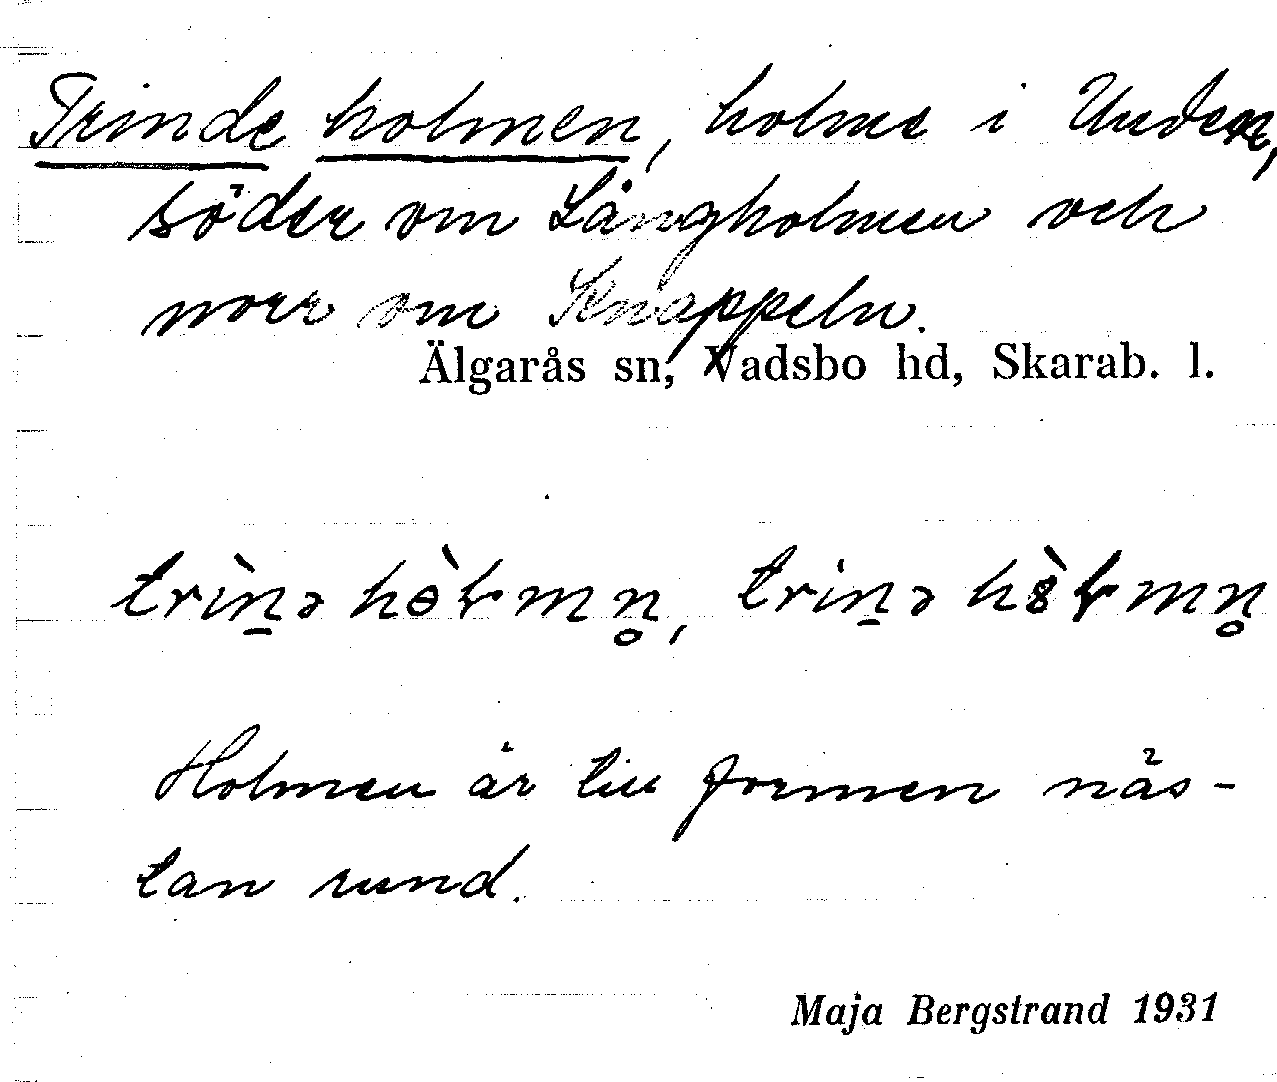 Trinde holmen, holme i Unden,
söder om Långholmen och
norr om Knappeln.
Älgarås sn, Vadsbo hd, Skarab. l.
trìn̲ə hɵ̀ɽmn̥, trin̲ə hɵ̀ɽmn̥
Holmen är till formen näs-
tan rund.
Maja Bergstrand 1931